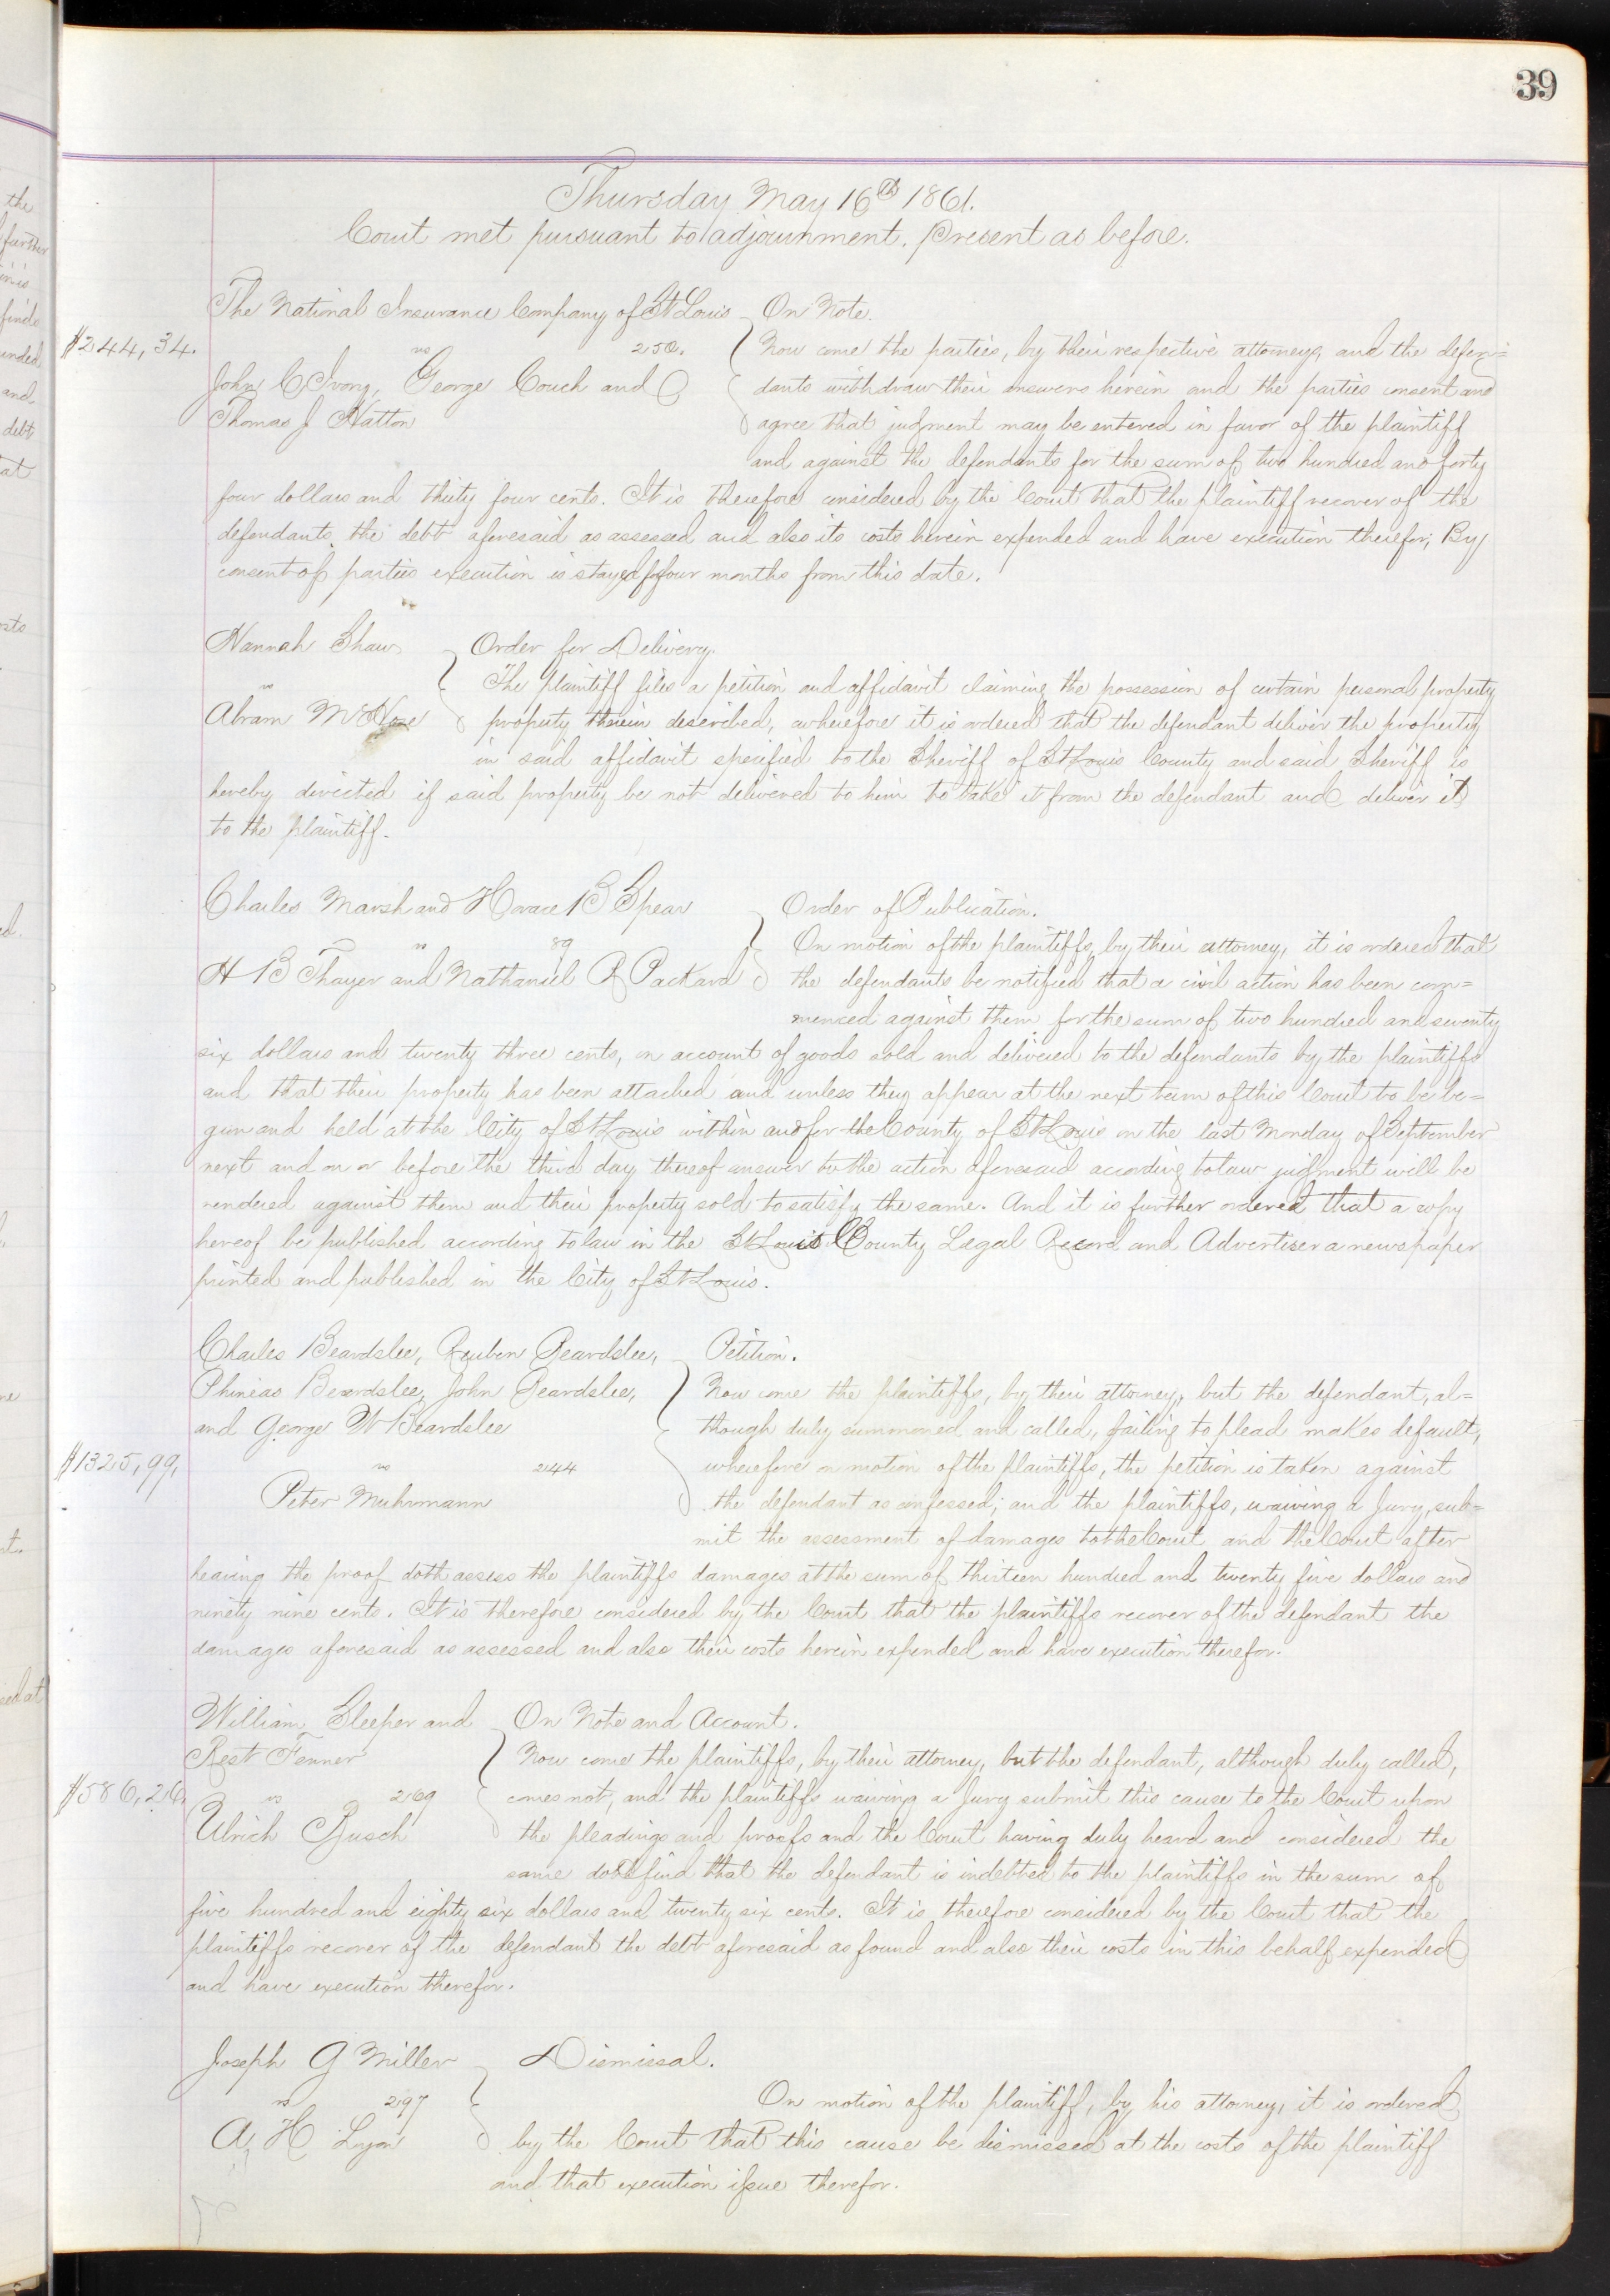 39
Thursday May 16th 1861.
Court met pursuant to adjournment. Present as before.
The National Insurance Company of St Louis
$244,34.
vs 250.
John C Ivory, George Couch and
Thomas J Hatton
On Note.
Now come the parties, by their respective attorneys, and the defen=
dants withdraw their answers herein and the parties consent and
agree that judgment may be entered in favor of the plaintiff
and against the defendants for the sum of two hundred and forty
four dollars and thirty four cents. It is therefore considered by the Court that the plaintiff recover of the
defendants the debt aforesaid as assessed and also its costs herein expended and have execution therefor; By
consent of parties execution is stayed for four months from this date.
Hannah Shaw
vs
Abram
Order for Delivery.
The plaintiff files a petition and affidavit claiming the possession of certain personal property
property therein described, wherefore it is ordered that the defendant deliver the property
in said affidavit specified to the Sheriff of St Louis County and said Sheriff is
hereby directed if said property be not delivered to him to take it from the defendant and deliver it
to the plaintiff.
Charles Marsh and Horace B Spear
vs 89
H B Thayer and Nathaniel R Packard
Order of Publication.
On motion of the plaintiffs, by their attorney, it is ordered that
the defendants be notified that a civil action has been com=
menced against them for the sum of two hundred and seventy
six dollars and twenty three cents, on account of goods sold and delivered to the defendants by the plaintiffs
and that their property has been attached and unless they appear at the next term of this Court to be be=
gun and held at the City of St Louis within and for the County of St Louis on the last Monday of September
next and on or before the third day thereof answer to the action aforesaid according to law judgment will be
rendered against them and their property sold to satisfy the same. And it is further ordered that a copy
hereof be published according to law in the St Louis County Legal Record and Advertiser a newspaper
printed and published in the City of St Louis.
Charles Beardslee, Reuben Beardslee,
Phineas Beardslee, John Beardslee,
and George W Beardslee
$1325,99,
vs 244
Peter Muhrmann
Petition.
Now come the plaintiffs, by their attorney, but the defendant, al=
though duly summoned and called, failing to plead makes default,
wherefore on motion of the plaintiffs, the petition is taken against
the defendant as confessed; and the plaintiffs, waiving a Jury, sub=
mit the assessment of damages to the Court and the Court after
hearing the proof doth assess the plaintiffs damages at the sum of thirteen hundred and twenty five dollars and
ninety nine cents. It is therefore considered by the Court that the plaintiffs recover of the defendant the
damages aforesaid as assessed and also their costs herein expended and have execution therefor.
William Sleeper and
Rest Fenner
$586,26
vs 269
Ulrich Busch
On Note and Account.
Now come the plaintiffs, by their attorney, but the defendant, although duly called,
comes not, and the plaintiffs waiving a Jury submit this cause to the Court upon
the pleadings and proofs and the Court having duly heard and considered the
same doth find that the defendant is indebted to the plaintiffs in the sum of
five hundred and eighty six dollars and twenty six cents. It is therefore considered by the Court that the
plaintiffs recover of the defendant the debt aforesaid as found and also their costs in this behalf expended
and have execution therefor.
Joseph G Miller
vs 297
A. H. Lyon
Dismissal.
On motion of the plaintiff, by his attorney, it is ordered
by the Court that this cause be dismissed at the costs of the plaintiff
and that execution issue therefor.